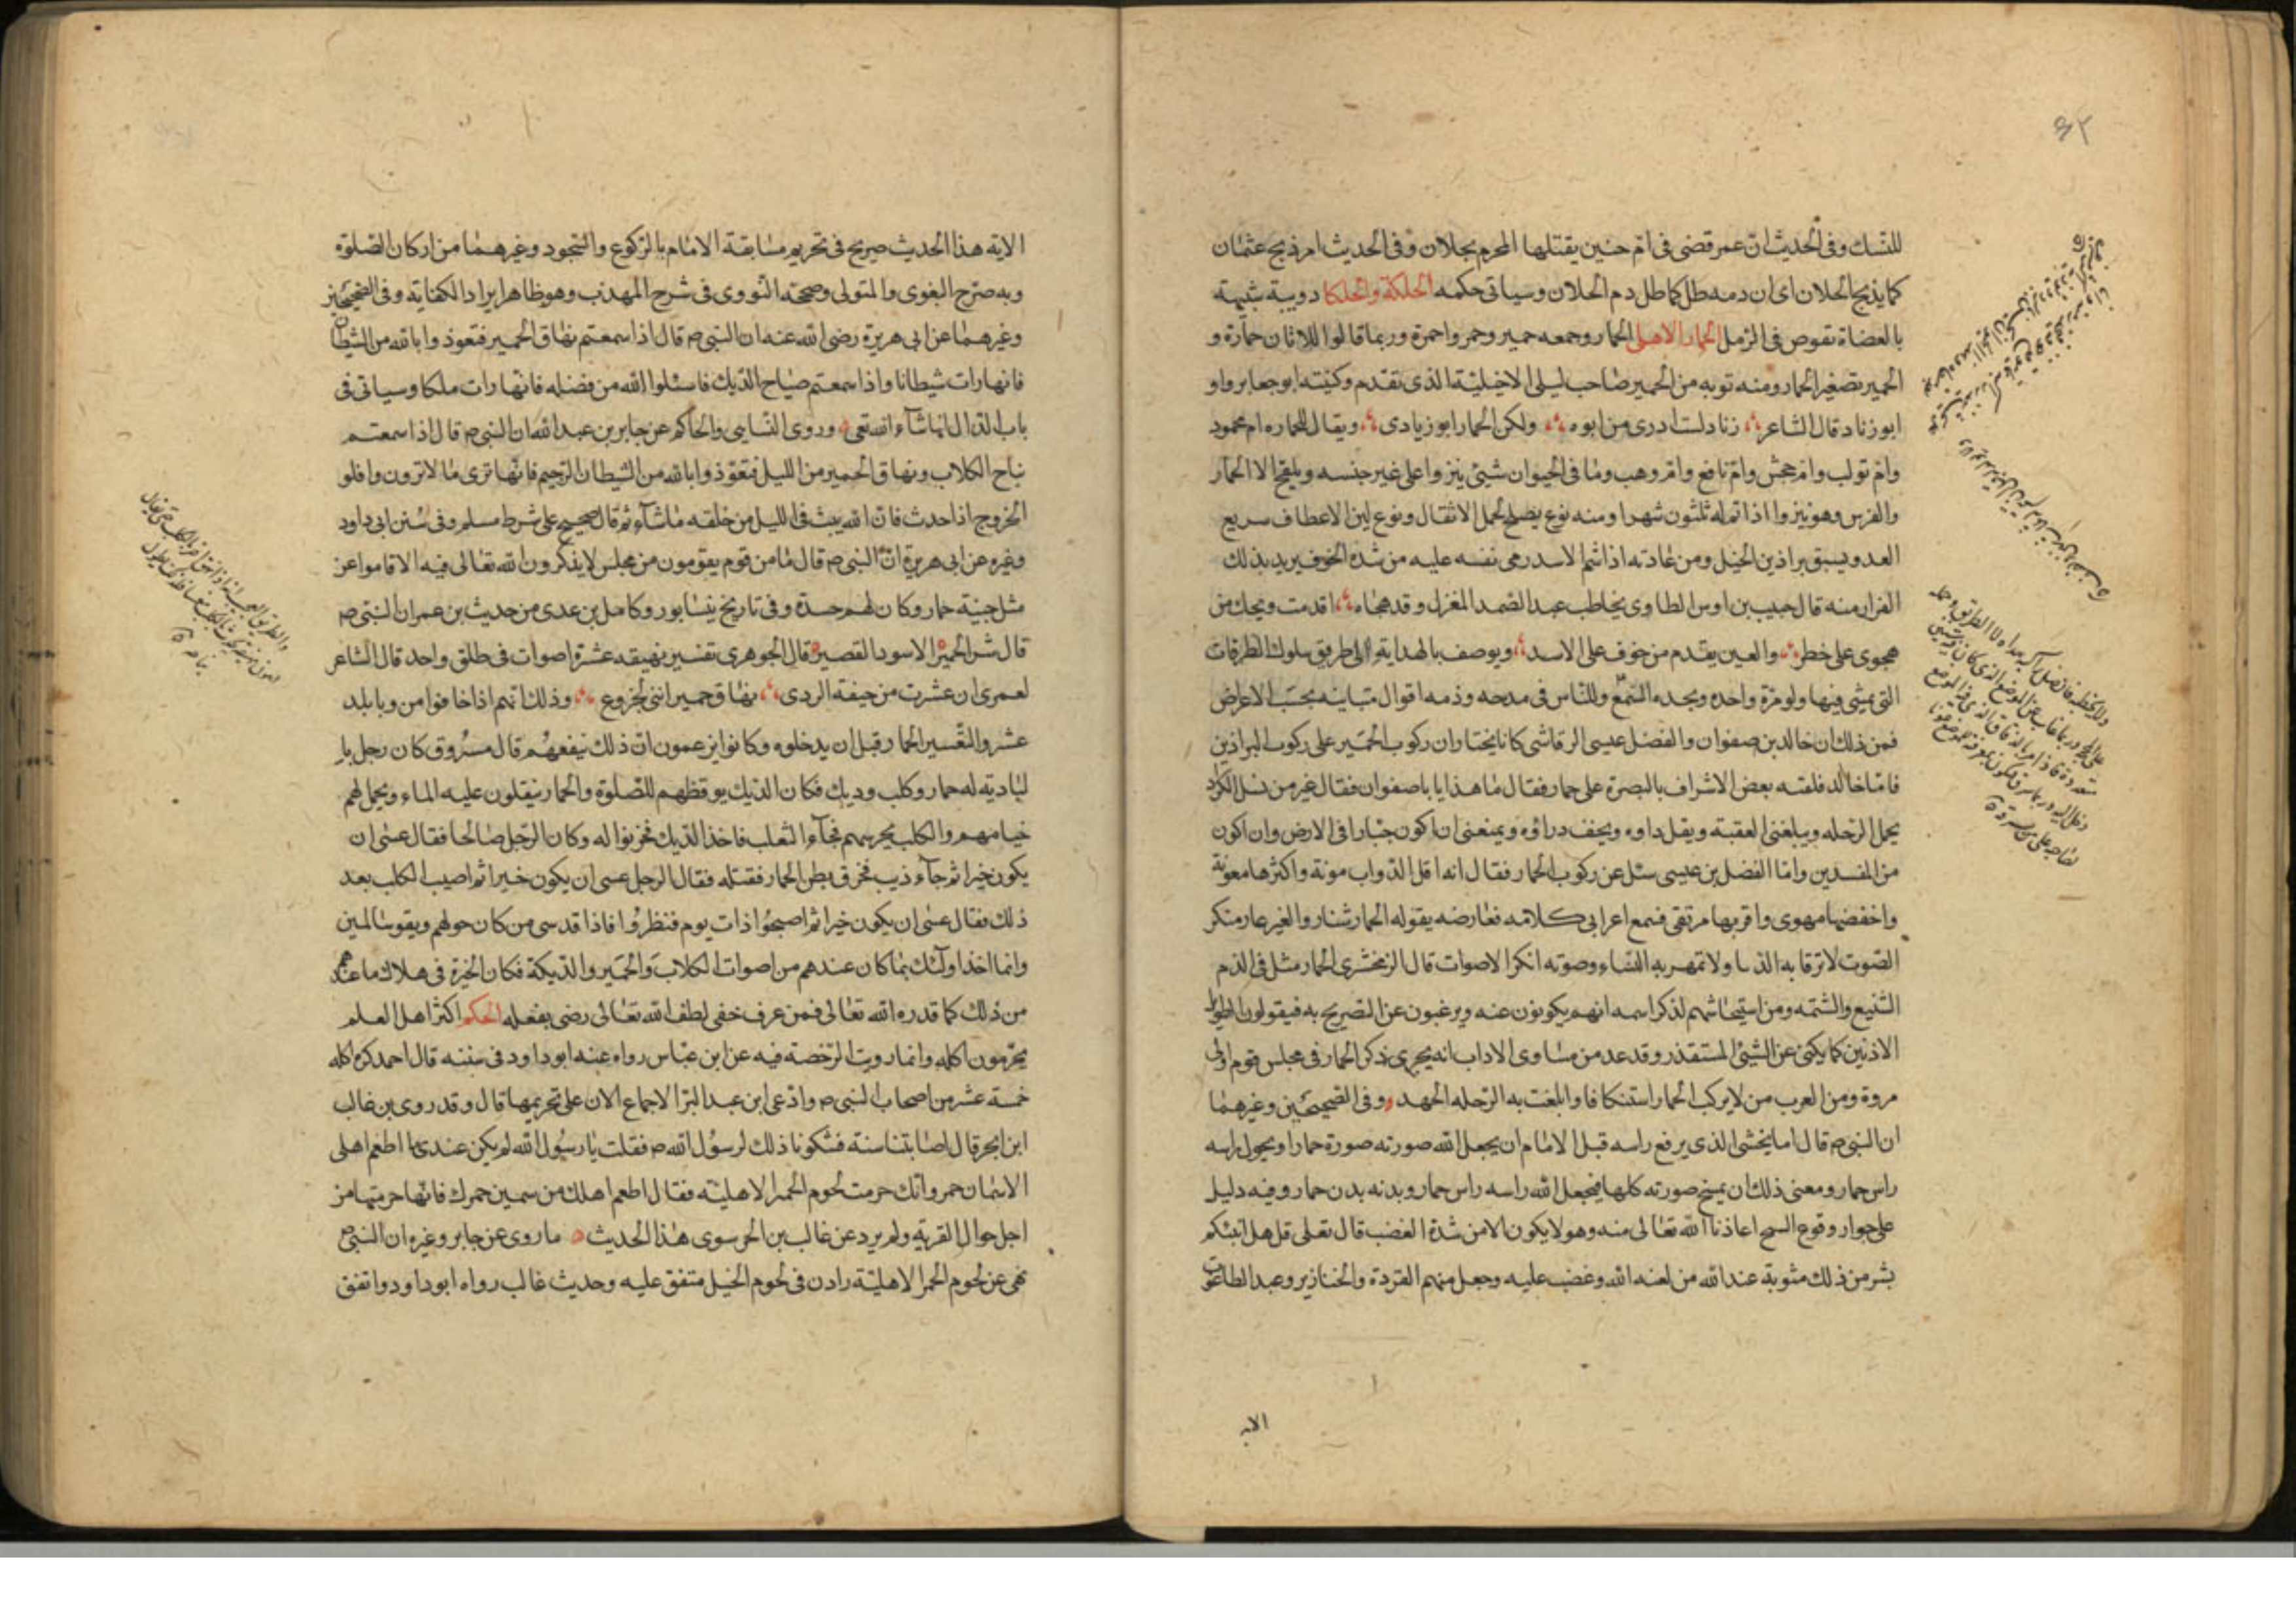 للنسك وفى الحديث ان عمر قضى فى ام حنين يقتلها المحرم بحلان وفى الحديث امر ذبح عثمان
كما يذبح الحلان اى ان دمه طل كما طل دم الحلان وسياتى حكمه الحلكة والحلكا دويبة شبيهة
بالعضاة تغوص فى الرمل الحمار الاهلى الحمار وجمعه حمير وحمر واحمرة وربما قالوا للاتان حمارة و
الحمير تصغير الحمار ومنه توبه من الحمير صاحب ليلى الاخيلية الذى تقدم وكنيته ابو جعابر واو
ابو زناد قال الشاعر زنا دلست ادرى من ابوه ولكن الحمار ابو زيادى ويقال للحماره ام محمود
وام تولب وام جحش وام نافع وام وهب وما فى الحيوان شيئ ينزوا على غير جنسه ويلقح الا الحمار
والفرس وهو ينزوا اذا تم له ثلثون شهرا ومنه نوع يصلح لحمل الاثقال ونوع لين الاعطاف سريع
العدو يسبق براذين الخيل ومن عادته اذا شم الاسد رمى نفسه عليه من شدة الخوف يريد بذلك
الفرار منه قال حبيب بن اوس الطاوى يخاطب عبد الصمد المغزل وقد هجاه اقدمت ويحك من
هجوى على خطر والعين يقدم من خوف على الاسد ويوصف بالهداية الى طريق سلوك الطرقات
التى يمشى فيها ولو مرة واحده وبحده السمع وللناس فى مدحه وذمه اقوال متباينه بحسب الاعراض
فمن ذلك ان خالد بن صفوان والفضل عيسى الرقاشى كانا يختاران ركوب الحمير على ركوب البراذين
فاما خالد فلقته بعض الاشراف بالبصرة على حمار فقال ما هذا يا باصفوان فقال غير من نسل الكرد
يحمل الرحله ويبلغنى العقبة ويقل داوه ويخف دراؤه ويمنعنى ان اكون جبارا فى الارض وان اكون
من المفسدين واما الفضل بن عيسى سئل عن ركوب الحمار فقال انه اقل الدواب مونة واكثرها معونة
واخفضها مهوى واقربها مرتقى فسمع اعرابى كلامه فعارضه يقوله الحمار شنار والغير عار منكر
الصوت لا ترقا به الذما ولا تمهر به النساء وصوته انكر الاصوات قال الزمخشرى الحمار مثل فى الذم
الشنيع والشتمه ومن استيحاشهم لذكر اسمه انهم يكونون عنه ويرغبون عن التصريح به فيقولون الطويل
الاذنين كما يكنى عن الشيئ المستقذر وقد عد من مساوى الاداب انه يجرى ذكر الحمار فى مجلس قوم اولى
مروة ومن العرب من لا يركب الحمار استنكافا وابلغت به الرحله الجهد وفى الصحيحين وغيرهما
ان النبى ص قال اما يخشى الذى يرفع راسه قبل الامام ان يجعل الله صورته صورة حمار او يحول راسه
راس حمار ومعنى ذلك ان يمسخ صورته كلها فيجعل الله راسه راس حمار وبدنه بدن حمار وفيه دليل
على جوار وقوع السح اعاذنا الله تعالى منه وهو لا يكون الا من شدة الغضب قال تعلى قل هل انبئكم
بشر من ذلك مثوبة عند الله من لعنه الله وغضب عليه وجعل منهم القردة والخنازير وعبد الطاغوت
الاية
الايه هذا الحديث صريح فى تحريم مسابقة الامام بالركوع والسجود وغيرهما من اركان الصلوة
وبه صرح البغوى والمتولى وصححه النووى فى شرح المهذب وهو ظاهر ايراد الكفاية وفى الصحيحين
وغيرهما عن ابى هريرة رضى الله عنه ان النبى ص قال اذا سمعتم نهاق الحمير فتعوذوا بالله من الشيطان
فانها رات شيطانا واذا سمعتم صياح الديك فاسئلوا الله من فضله فانها رات ملكا وسياتى فى
باب الذال انها شاء الله تعى وروى النسايى والحاكم عن جابر بن عبد الله ان النبى ص قال اذا سمعتم
نباح الكلاب ونهاق الحمير من الليل فتعوذوا بالله من الشيطان الرجيم فانها ترى ما لا ترون واقلو
الخروج اذا حدث فان الله يبث فى الليل من خلقه ما شاء ثم قال صحيح على شرط مسلم وفى سنن ابى داود
وغيره عن ابى هريرة ان النبى ص قال ما من قوم يقومون من مجلس لا يذكرون الله تعالى فيه الا قاموا عن
مثل جيفة حمار وكان لهم حسدة وفى تاريخ نيسابور وكامل بن عدى من حديث بن عمران النبى ص
قال شر الحمير الاسود القصير قال الجوهرى تفسير نهيقه عشرة اصوات فى طلق واحد قال الشاعر
لعمرى ان عشرت من خيفة الردى نهاق حمير اننى لجزوع وذلك انهم اذا خافوا من وبا بلد
عشروا التعسير الحمار قبل ان يدخلوه وكانوا يزعمون ان ذلك ينفعهم قال مسروق كان رجل با
لبادية له حمار وكلب وديك فكان الديك يوقظهم للصلوة والحمار ينقلون عليه الماء ويحمل لهم
خيامهم والكلب يحرسهم فجآء الثعلب فاخذ الديك فحزنوا له وكان الرجل صالحا فقال عسى ان
يكون خيرا ثم جآء ذيب فخرق بطن الحمار فقتله فقال الرجل عسى ان يكون خيرا ثم اصيب الكلب بعد
ذلك فقال عسى ان يكون خيرا ثم اصبحوا ذات يوم فنظروا فاذا قد سى من كان حولهم وبقوا سالمين
وانما اخذ اولئك بما كان عندهم من اصوات الكلاب والحمير والديكة فكان الخيرة فى هلاك ما عندهم
من ذلك كما قدره الله تعالى فمن عرف خفى لطف الله تعالى رضى بفعله الحكم اكثر اهل العلم
يحرمون اكله وانما رويت الرخصة فيه عن ابن عباس رواه عنه ابو داود فى سننه قال احمد كره اكله
خمسة عشر من اصحاب النبى ص وادعى ابن عبد البر الاجماع الان على تحريمها قال وقد روى بن غالب
ابن ابجر قال اصابتنا سنة فشكونا ذلك لرسول الله ص فقلت يا رسول الله لم يكن عندى ما اطعم اهلى
الا سمان حمر وانك حرمت لحوم الحمر الاهلية فقال اطعم اهلك من سمين حمرك فانها حرمتها من
اجل حوال القرية ولم يرد عن غالب بن الحر سوى هذا الحديث ما روى عن جابر وغيره ان النبى ص
نهى عن لحوم الحمر الاهلية رادن فى لحوم الخيل متفق عليه وحديث غالب رواه ابو داود واتفق